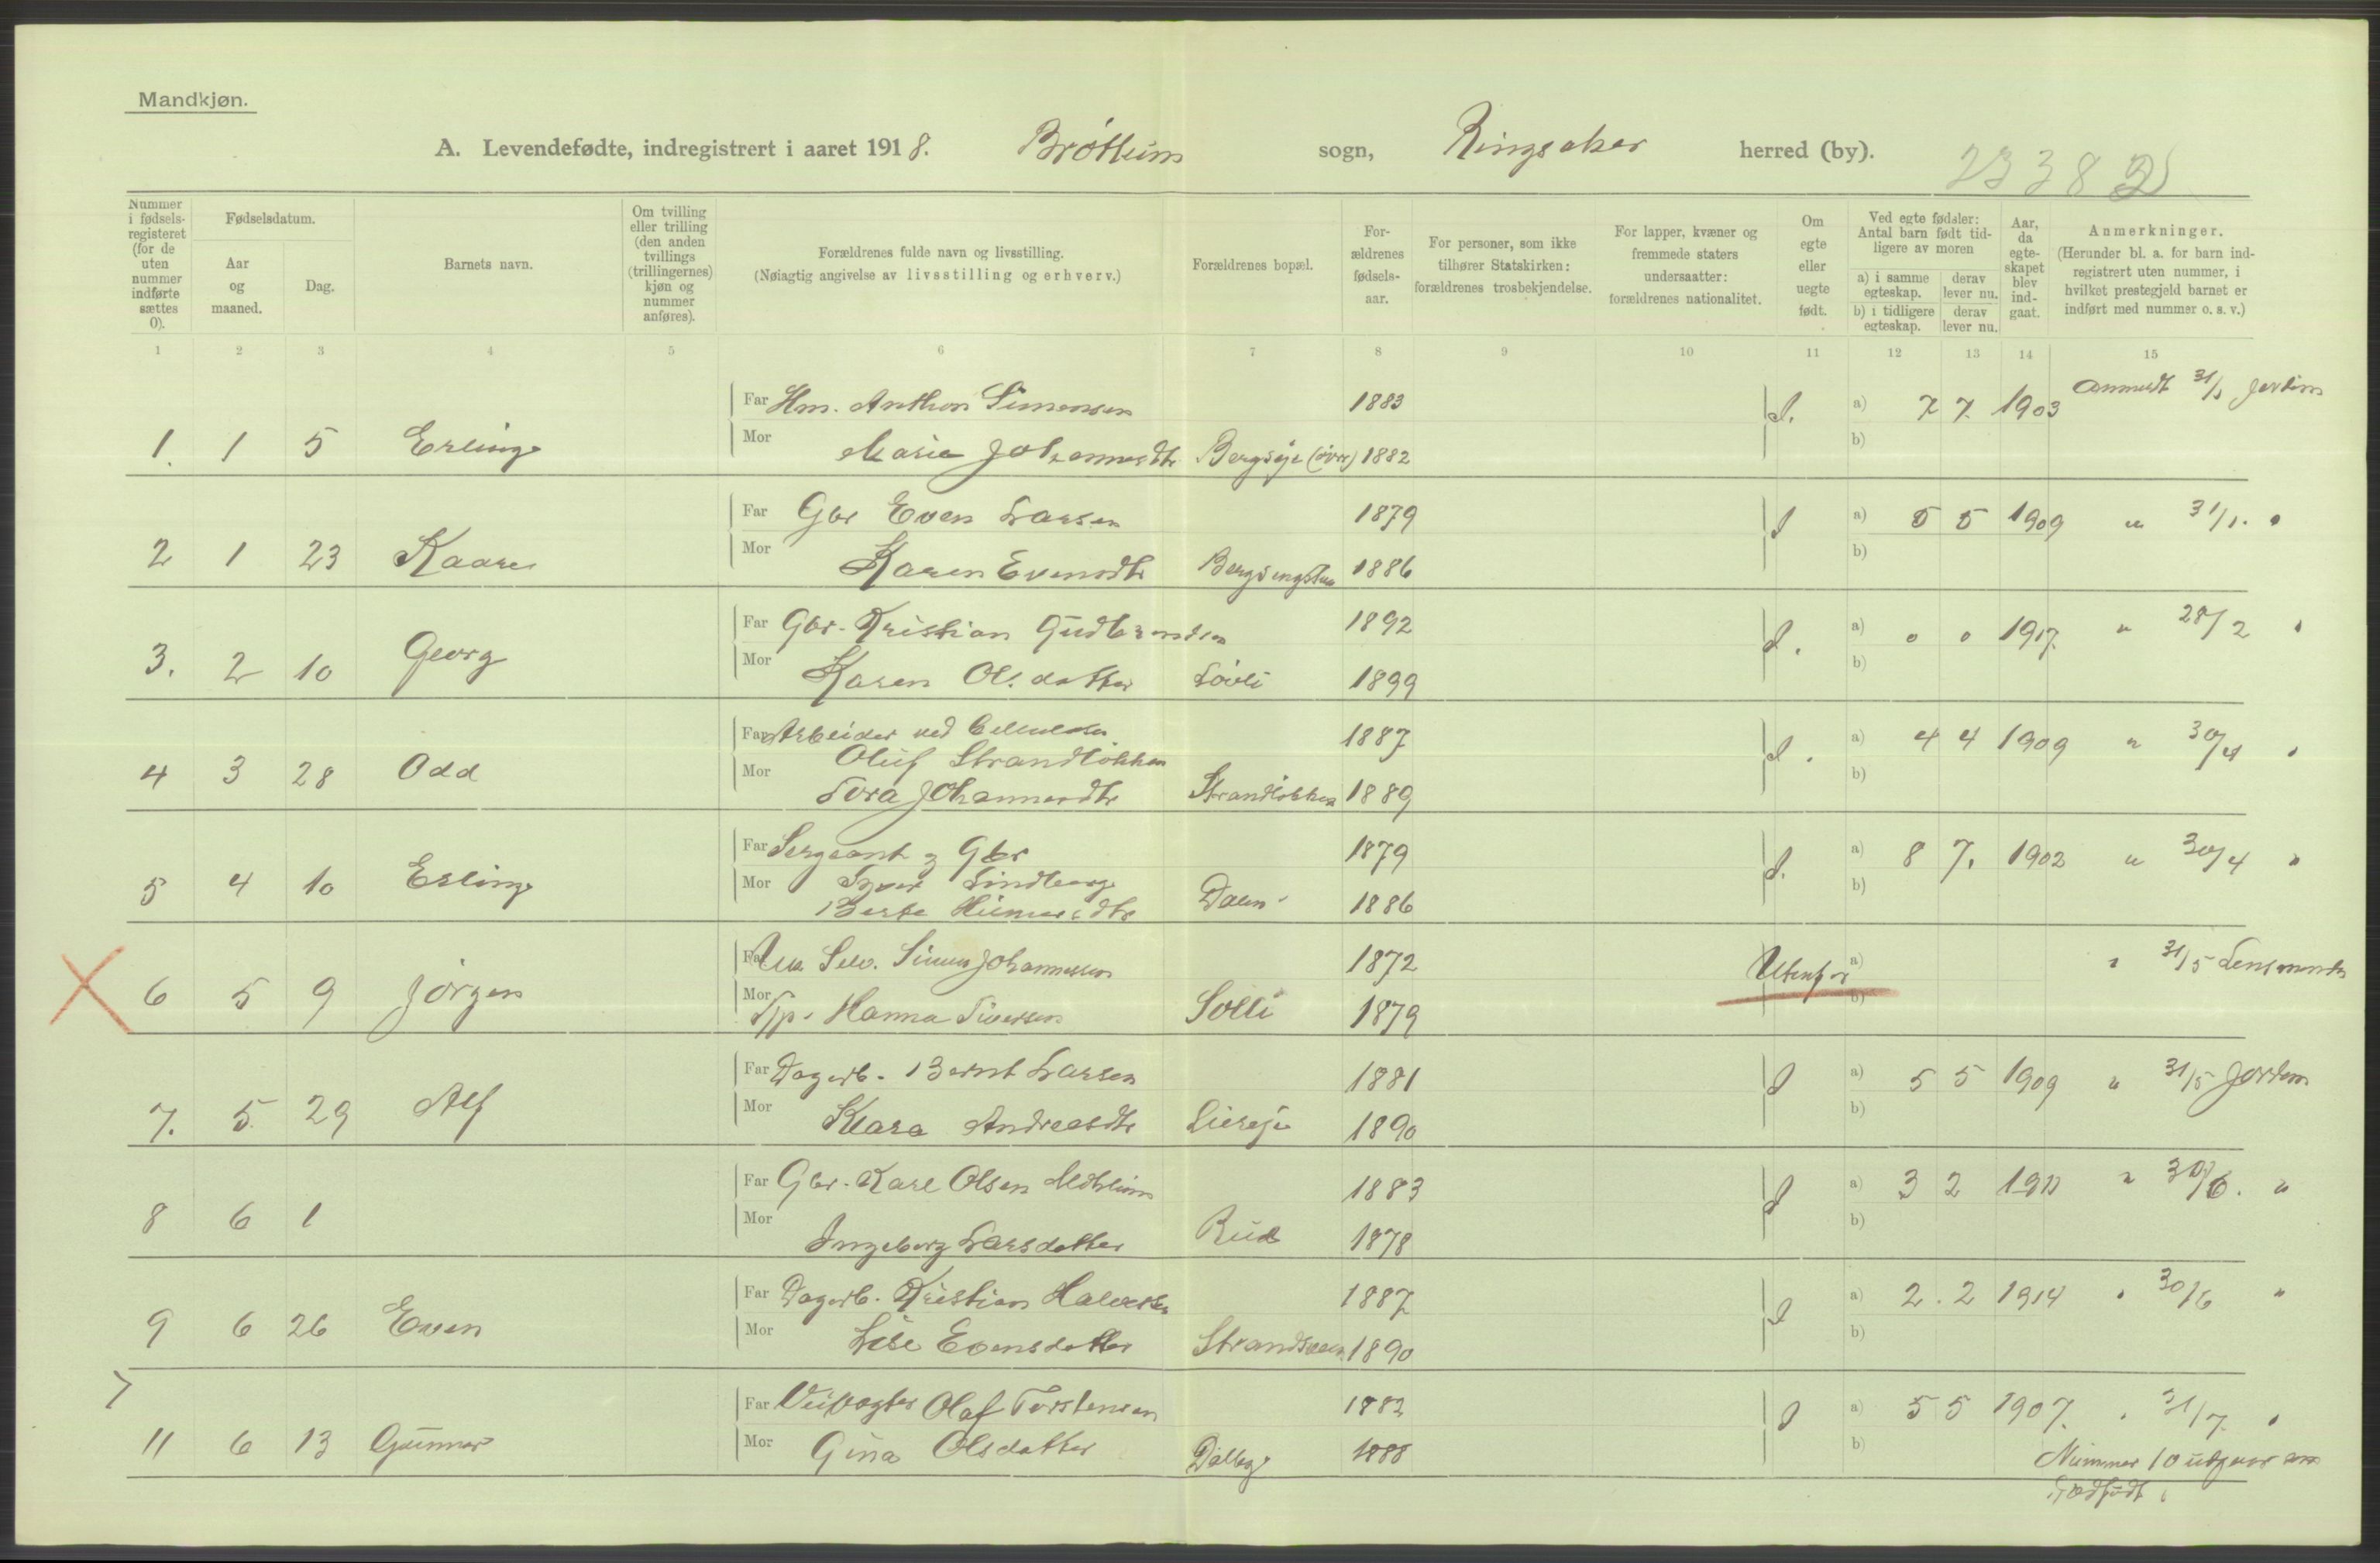 Mandkjøn.
A. Levendefødte, indregistrert i aaret 1918. Brøttum sogn, Ringsaker herred (by).
Nummer i fødselsregisteret (for de uten nummer indførte sættes 0).
Fødselsdatum.
Aar og maaned.
Dag.
Barnets navn.
Om tvilling eller trilling (den anden tvillings (trillingernes) kjøn og nummer anføres).
Forældrenes fulde navn og livsstilling.
(Nøiagtig angivelse av livsstilling og erhverv.)
Forældrenes bopæl.
Forældrenes fødselsaar.
For personer, som ikke tilhører Statskirken: forældrenes trosbekjendelse.
For lapper, kvæner og fremmede staters undersaatter: forældrenes nationalitet.
Om egte eller uegte født.
Ved egte fødsler: Antal barn født tidligere av moren
a) i samme egteskap. derav lever nu.
b) i tidligere egteskap. derav lever nu.
Aar, da egteskapet blev indgaat.
Anmerkninger.
(Herunder bl. a. for barn indregistrert uten nummer, i hvilket prestegjeld barnet er indført med nummer o. s. v.)
1 2 3 4 5 6 7 8 9 10 11 12 13 14 15
Far Hm. Anthon Simensen 1883 a) 7 7 1903 Anmeldt 31/1 Jordm
1. 1 5 Erling Mor Marie Johannesdtr Bergseje (øvre) 1882 b)
Far Gbr Even Larsen 1879 a) 5 5 1909 " 31/1 "
2 1 23 Kaare Mor Karen Evensdtr 1886 b)
Far Gbr. Kristian Gudbrandsen 1892 a) 0 0 1917. " 28/2 "
3. 2 10 Georg Mor Karen Olsdatter Lövli 1899 b)
Far Arbeider ved 1887 a) 4 4 1909 " 30/4 "
Oluf Strandlökken
4 3 28 Odd Mor Tora Johannesdtr Strandlökken 1889 b)
Far Sergeant og Gbr 1879 a) 8 7. 1902 " 30/4 "
Syver Lindberg
5 4 10 Erling Mor Berte Dalen 1886 b)
Far Selv. Simen Johannessen 1872 Utenfor a) " 31/5 Lensmanden
6 5 9 Jörgen Mor Hanna Siversen Solli 1879 b)
Far Dagarb. Bernt Larsen 1881 a) 5 5 1909 " 31/5 Jordm
7. 5. 29 Alf Mor Klara Andreasdtr Liereje 1890 b)
Far Gbr. Karl Olsen 1883 a) 3 2 " 30/6. "
8 6 1 Mor Ingeborg Larsdatter Rud 1878 b)
Far Dagarb. Kristian Halvorsen 1887 a) 2. 2 1914 " 30/6 "
9 6 26 Even Mor Lise Evensdatter 1890 b)
Far Veivogter Olaf Torstensen 1882 a) 5 5 1907. " 31/7. "
11 6 13 Gunnar Mor Gina Olsdatter 1888 b)
Nummer 10 utgaar som
dödfödt.